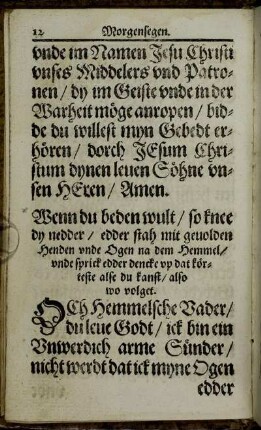 12 Morgensegen.
vnde im Namen Jesu Christi
vnses Middelers vnd Patro-
nen / dy im Geiste vnde in der
Warheit möge anropen / bid-
de du willest myn Gebedt er-
hören / dorch JEsum Chri-
stum dynen leuen Söhne vn-
sen HEren / Amen.
Wenn du beden wult / so knee
dy nedder / edder stah mit geuolden
Henden vnde Ogen na dem Hemmel /
vnde sprick edder dencke vp dat kör-
teste alse du kanst / also
wo volget.
OCh Hemmelsche Vader /
du leue Godt / ick bin ein
Vnwerdich arme Sünder /
nicht werdt dat ick myne Ogen
edder